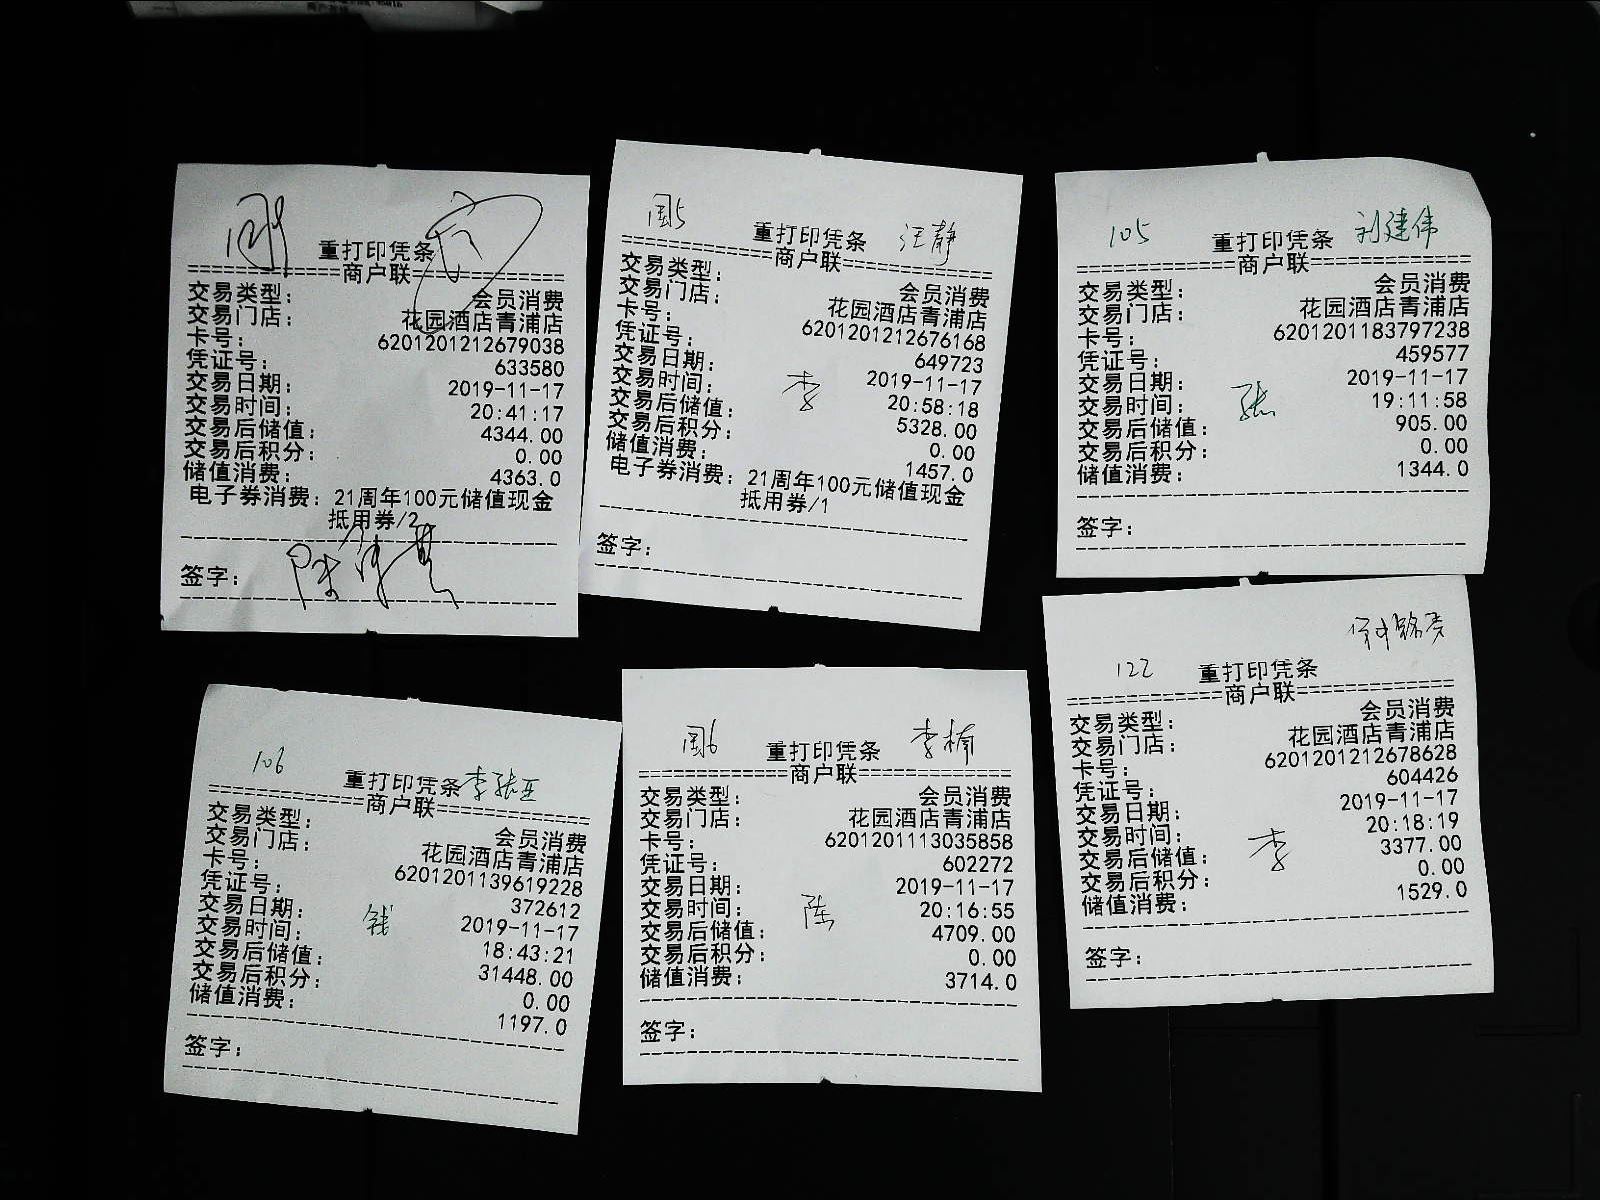 重打印凭条
商户联
交易类型: 会员消费
交易门店: 花园酒店青浦店
卡号: 6201201212679038
凭证号: 633580
交易日期: 2019-11-17
交易时间: 20:41:17
交易后储值: 4344.00
交易后积分: 0.00
储值消费: 4363.0
电子券消费: 21周年100元储值现金
抵用券/2
签字:
汪静
重打印凭条
商户联
交易类型: 会员消费
交易门店: 花园酒店青浦店
卡号: 6201201212676168
凭证号: 649723
交易日期: 2019-11-17
交易时间: 20:58:18
李
交易后储值: 5328.00
交易后积分: 0.00
储值消费: 1457.0
电子券消费: 21周年100元储值现金
抵用券/1
签字:
105 重打印凭条 刘建伟
商户联
交易类型: 会员消费
交易门店: 花园酒店青浦店
卡号: 6201201183797238
凭证号: 459577
交易日期: 2019-11-17
交易时间: 19:11:58
张
交易后储值: 905.00
交易后积分: 0.00
储值消费: 1344.0
签字:
106 重打印凭条 李张亚
商户联
交易类型: 会员消费
交易门店: 花园酒店青浦店
卡号: 6201201139619228
凭证号: 372612
交易日期: 2019-11-17
钱
交易时间: 18:43:21
交易后储值: 31448.00
交易后积分: 0.00
储值消费: 1197.0
签字:
重打印凭条 李楠
商户联
交易类型: 会员消费
交易门店: 花园酒店青浦店
卡号: 6201201113035858
凭证号: 602272
交易日期: 2019-11-17
交易时间: 20:16:55
陈
交易后储值: 4709.00
交易后积分: 0.00
储值消费: 3714.0
签字:
122 重打印凭条
商户联
交易类型: 会员消费
交易门店: 花园酒店青浦店
卡号: 6201201212678628
凭证号: 604426
交易日期: 2019-11-17
交易时间: 20:18:19
李
交易后储值: 3377.00
交易后积分: 0.00
储值消费: 1529.0
签字: